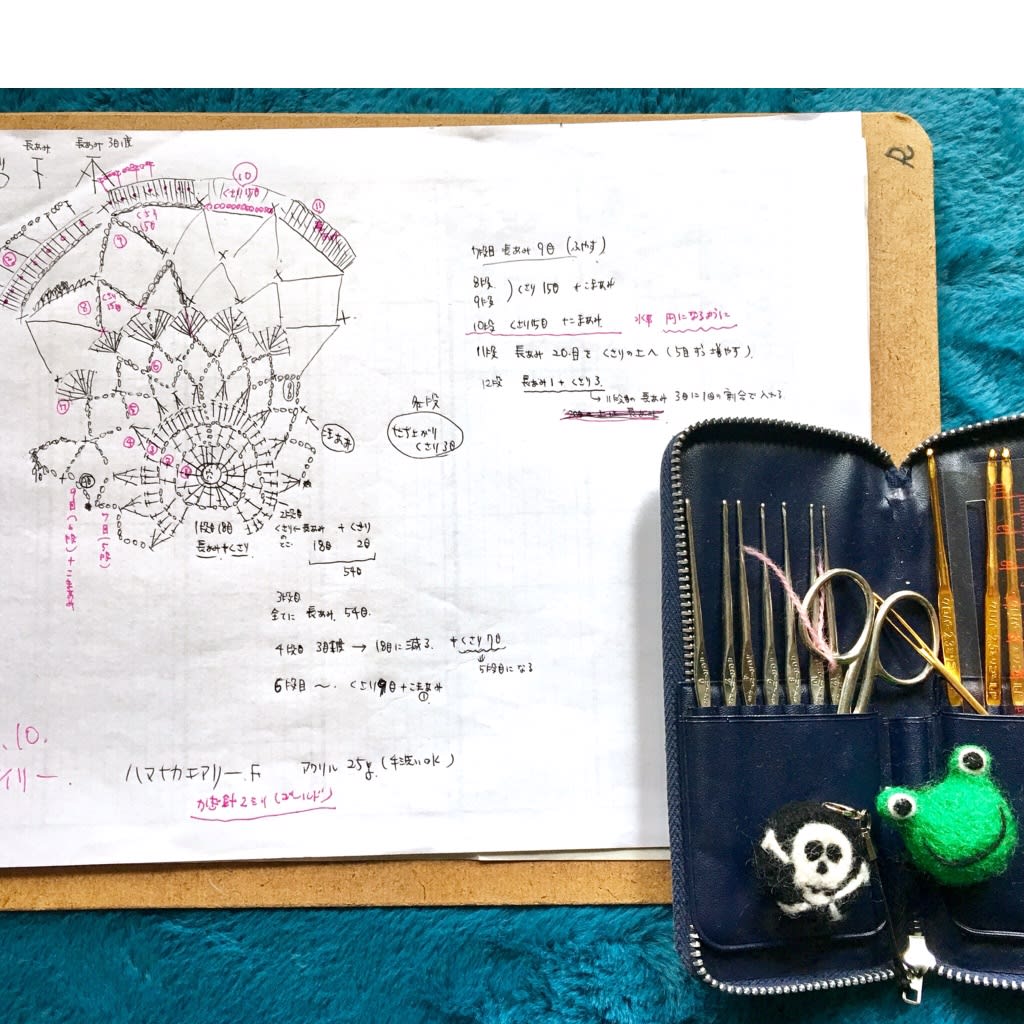 長あみ
長あみ 3目1度
⑩
くさり15目
⑪
⑫
くさり
15目
⑨
⑧
くさり
15目
⑥
⑦
⑤
④
③
②
①
こまあみ
各段
たち上がり
くさり3目
9目(6段)+こまあみ
7目(5段)
1段目18目
長あみ+くさり
2段目
くさり 長あみ + くさり
18目 2目
54目
3段目
全てに 長あみ 54目
4段目 3目1度 → 18目に減る. +くさり7目
5段目になる
6段目 〜. くさり9目+こまあみ
①
7段目 長あみ 9目 (ふやす)
8段
9段
くさり 15目 +こまあみ
10段 くさり15目 +こまあみ 円になるように
11段 長あみ 20目で くさりの上へ (5目ずつ増やす).
12段 長あみ1+くさり3.
→11段目の 長あみ 3目に1目の割合で入れる.
.10.
イリー.
ハマナカエアリー.F アクリル 25g. (手洗いOK)
かぎ針2ミリ(ゴールド)
R